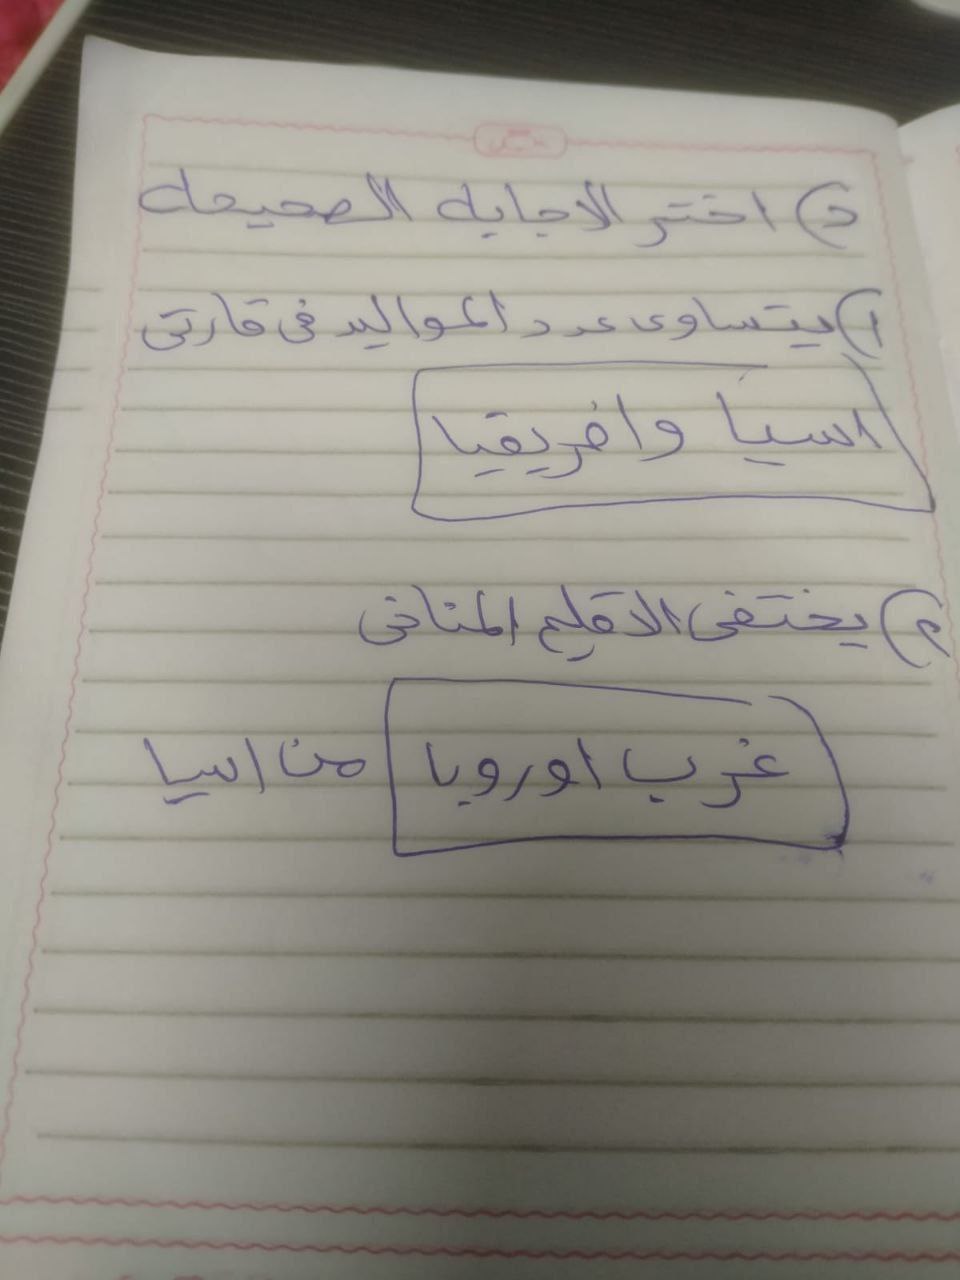 ج) اختر الاجابه الصحيحه
١) يتساوى عدد المواليد فى قارتى
اسيا وافريقيا
٢) يختفى الاقليم المناخى
غرب اوروبا من اسيا